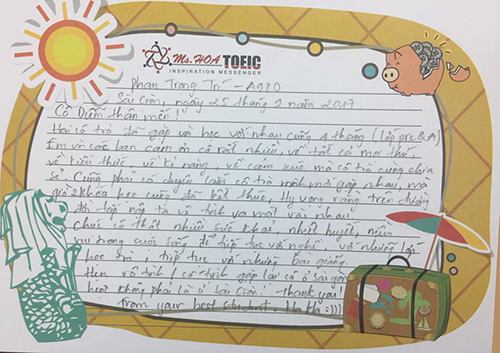 Ms.HOA TOEIC
INSPIRATION MESSENGER
Phan Trọng Trí - A980
Sài Gòn, ngày 25 tháng 9 năm 2017
Cô Diễm thân mến!
Hai cô trò đã gặp và học với nhau cũng 4 tháng (lớp pre & A)
Em và các bạn cảm ơn cô rất nhiều, về tất cả mọi thứ,
về kiến thức, về kĩ năng, về cảm xúc mà cô trò cùng chia
sẻ. Cũng phải có duyên lắm cô trò mình mới gặp nhau, mà
giờ 2 khóa học cũng đã kết thúc, Hy vọng rằng trên đường
đời tấp nập ta vô tình va mặt vài nhau.
Chúc cô thật nhiều sức khỏe, nhiệt huyết, niềm
vui trong cuộc sống để tiếp tục với nghề, với những lớp
học trò, tiếp tục với những bài giảng.
Hẹn vô tình / cố tình gặp lại cô ở Sài gòn
hoặc không phải là ở Sài Gòn! Thank you!
From your best student. Ha Ha :)))